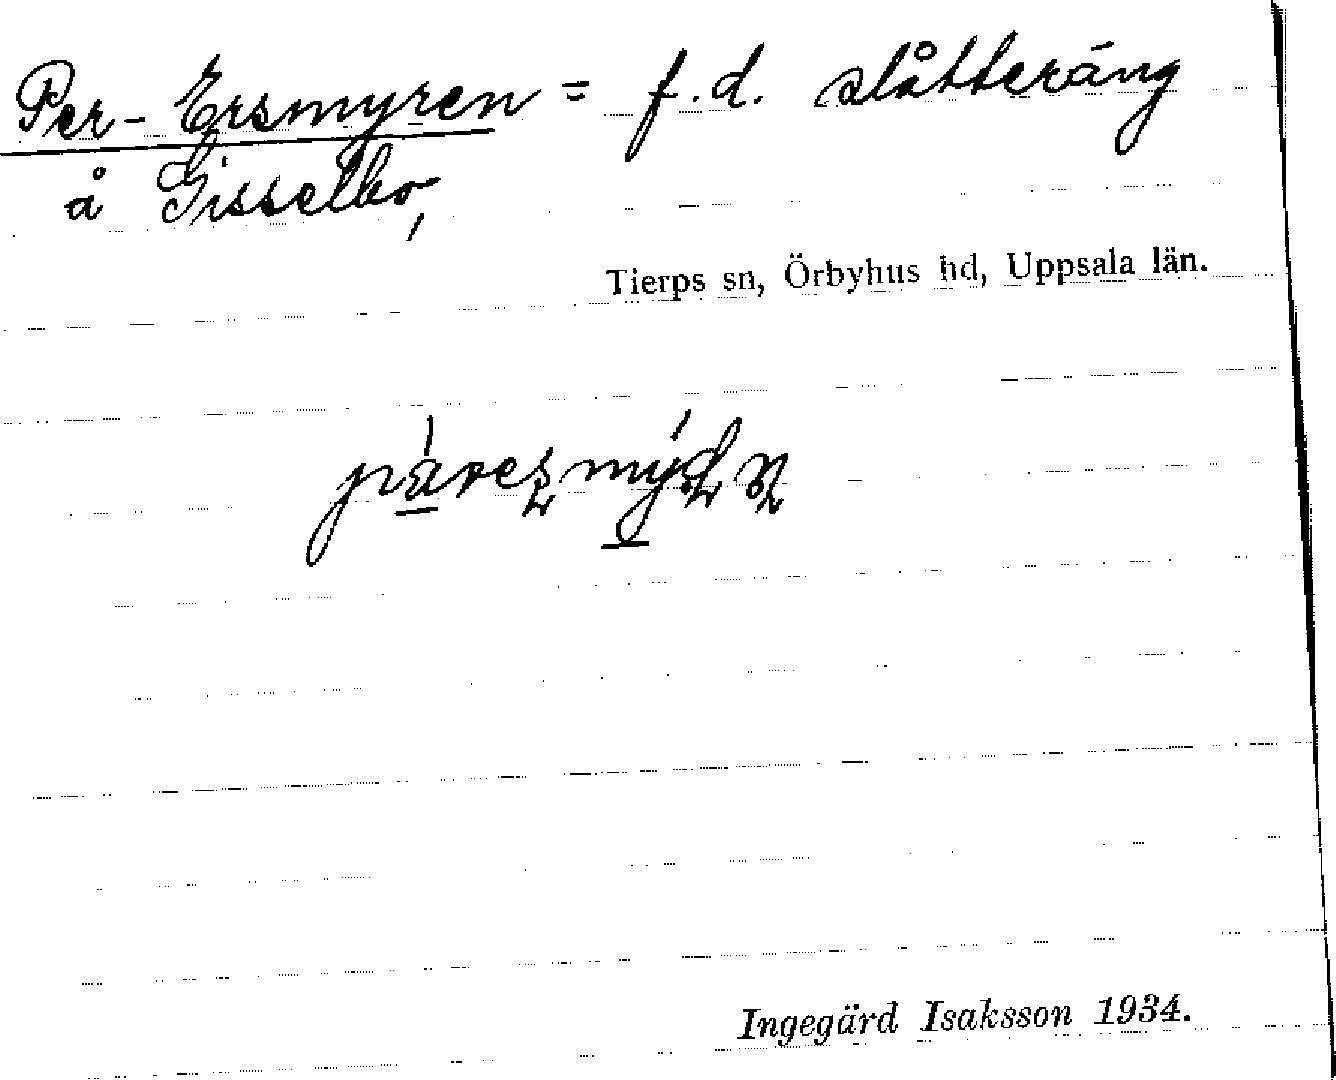 Per-Ersmyren = f.d. slåtteräng
å Gisselbo,
Tierps sn, Örbyhus hd, Uppsala län.
Ingegärd Isaksson 1934.